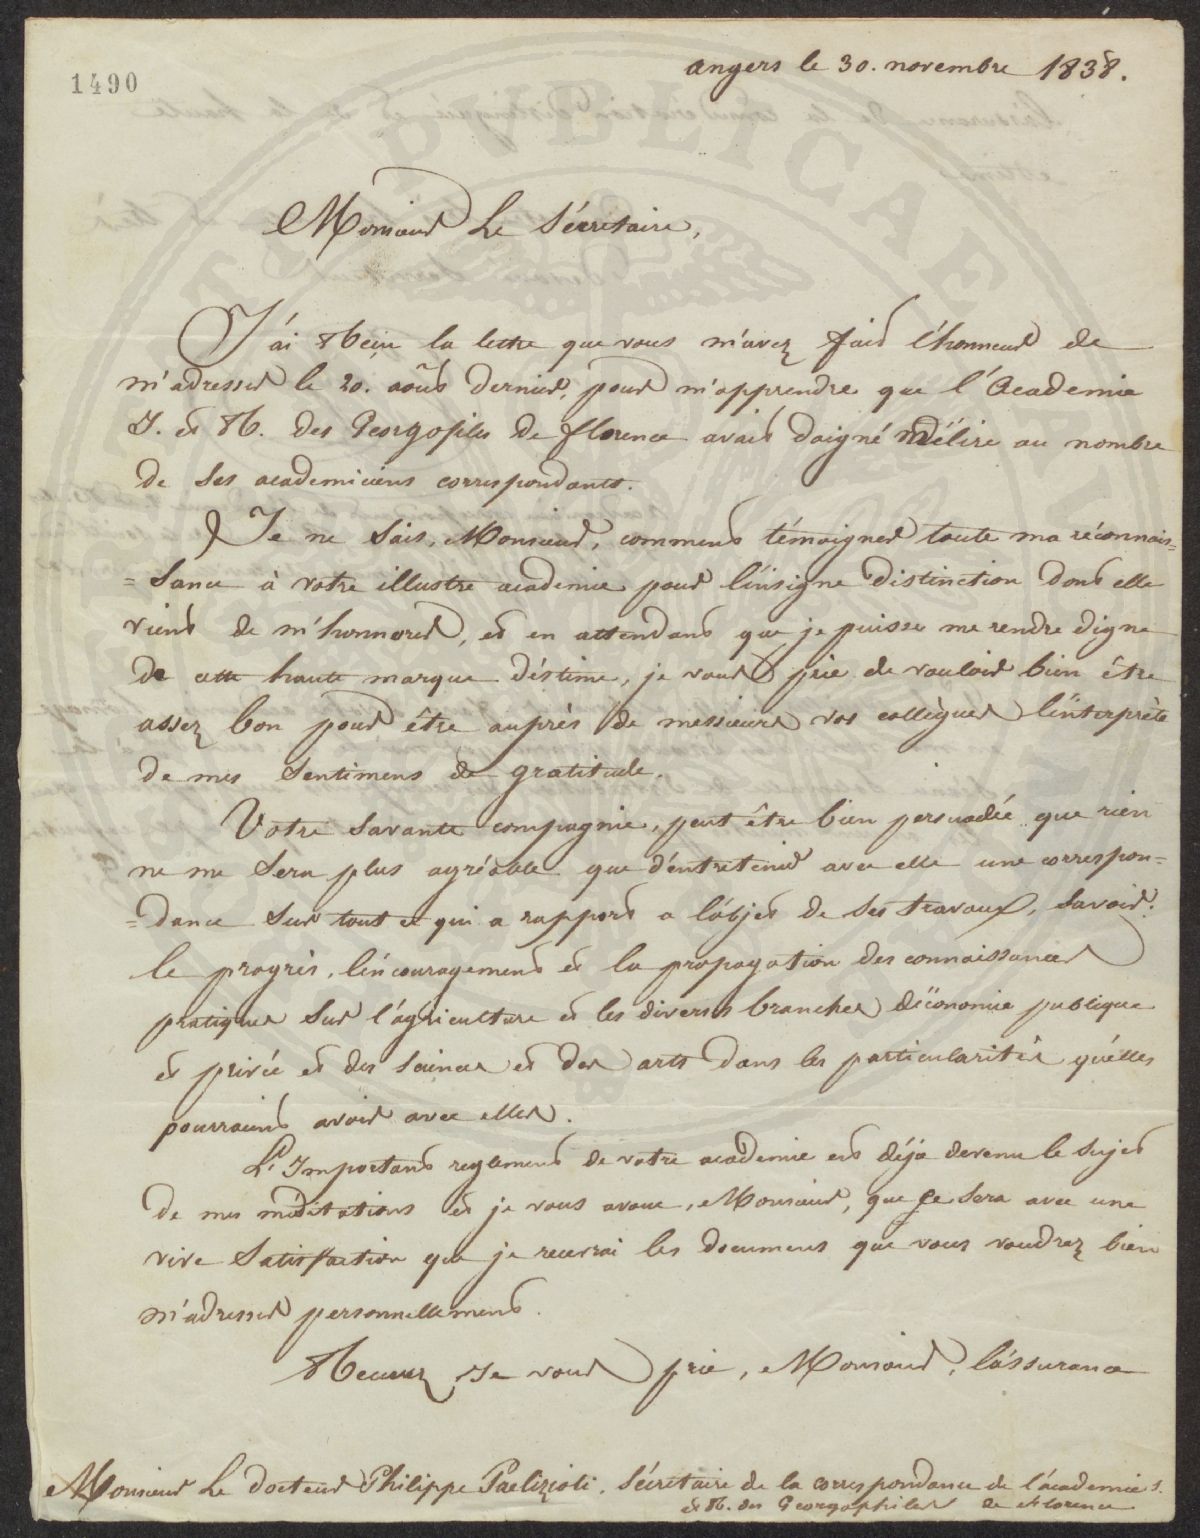 1490
angers le 30. novembre 1838.
Monsieur Le Sécretaire,
J'ai Reçu la lettre que vous m'avez faid l'honneur de
m'adresser le 20. août dernier, pour m'apprendre que l'Academie
I. et R. des Georgofiles de florence avait daigné m'élire au nombre
de ses academiciens correspondants.
Je ne sais, Monsieur, comment témoigner toute ma réconnais=
=sance à votre illustre academie pour l'insigne distinction dont elle
vient de m'honnorer, et en attendant que je puisse me rendre digne
de cette haute marque d'éstime, je vous prie de vouloir bien être
assez bon pour être auprès de messieurs vos collègues l'interprète
de mes sentimens de gratitude.
Votre savante compagnie, peut être bien persuadée que rien
ne me sera plus agréable que d'entretenir avec elle une correspon=
=dance sur tout ce qui a rapport a l'objet de ses travaux, savoir:
le progrès, l'encouragement et la propagation des connaissances
pratiques sur l'agriculture et les diverses branches d'économie publique
et privée et des sciences et des arts dans les particularités qu'elles
pourraient avoir avec elles.
L'Important reglement de votre academie est déjà devenu le sujet
de mes méditations et je vous avoue, Monsieur, que ce sera avec une
vive satisfaction que je recevrai les documens que vous voudrez bien
m'adresser personnellement.
Recevez, Je vous prie, Monsieur, l'assurance
Monsieur Le docteur Philippe Paelizioti, Sécretaire de la correspondance de l'académie I.
et R. des Georgophiles de florence
PUBLICAE